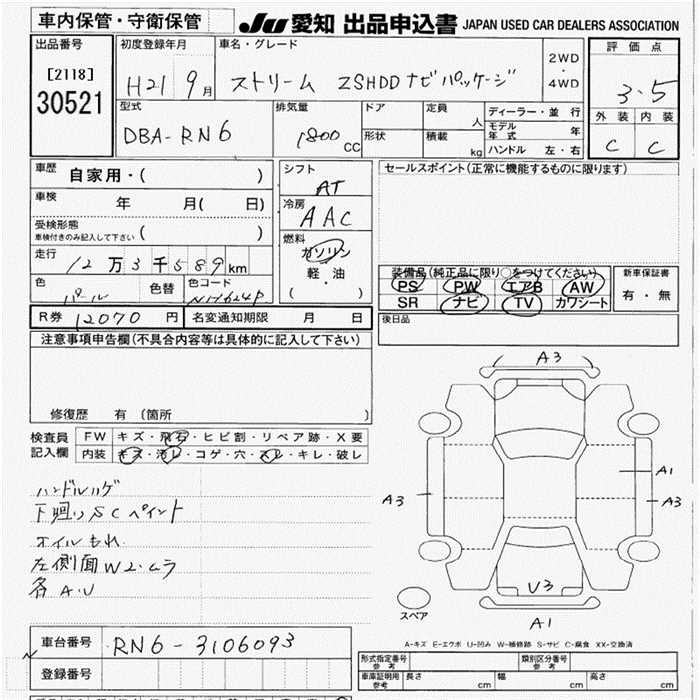 車内保管・守衛保管
JU 愛知 出品申込書 JAPAN USED CAR DEALERS ASSOCIATION
出品番号
[2118]
30521
初度登録年月
H21 9月
車名・グレード
ストリーム ZSHDDナビパッケージ
2WD
・
4WD
評価点
3.5
外装 内装
C C
型式
DBA-RN6
排気量
1800 CC
ドア
形状
定員 人
積載 kg
ディーラー・並行
モデル年式 年
ハンドル 左・右
車歴
自家用・( )
車検 年 月( 日)
受検形態
車検付きのみ記入して下さい ( )
走行
12万3千589km
色 パール
色替
色コード NH624P
シフト
AT
冷房
AAC
燃料
ガソリン
軽・油
( )
セールスポイント(正常に機能するものに限ります)
装備品(純正品に限り○をつけてください)
PS PW エアB AW
SR ナビ TV カワシート
新車保証書
有・無
R券 12070 円
名変通知期限 月 日
後日品
注意事項申告欄(不具合内容等は具体的に記入して下さい)
修復歴 有 〔箇所 〕
検査員
記入欄
FW キズ・飛石・ヒビ割・リペア跡・X要
内装 キズ・汚レ・コゲ・穴・スレ・キレ・破レ
ハンドルハゲ
下廻りSCペイント
オイルもれ
左側面W2.ムラ
各A.U
A3
A1
A3
A3
U3
A1
スペア
A-キズ E-エクボ U-凹み W-補修跡 S-サビ C-腐食 XX-交換済
車台番号 RN6-3106093
登録番号
形式指定番号
参考
類別区分番号
参考
車庫証明用
参考
長さ cm 幅 cm 高さ cm